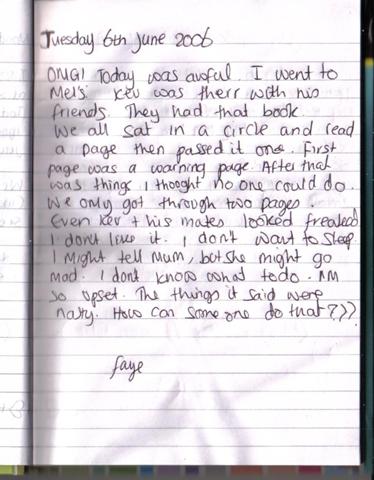 Tuesday 6th June 2006
OMG! Today was awful I went to
Mel's. Kev was therr with his
friends. They had that book.
We all sat in a circle and read
a page then passed it one. First
page was a warning page. After that
was things I thoght no one could do.
We only got through two pages.
Even Kev + his mates looked freaked
I dont like it. I don't want to sleep.
I Might tell Mum, but she might go
mad. I dont know what to do. I'm
so upset. The things it said were
nasty. How can some one do that???
faye